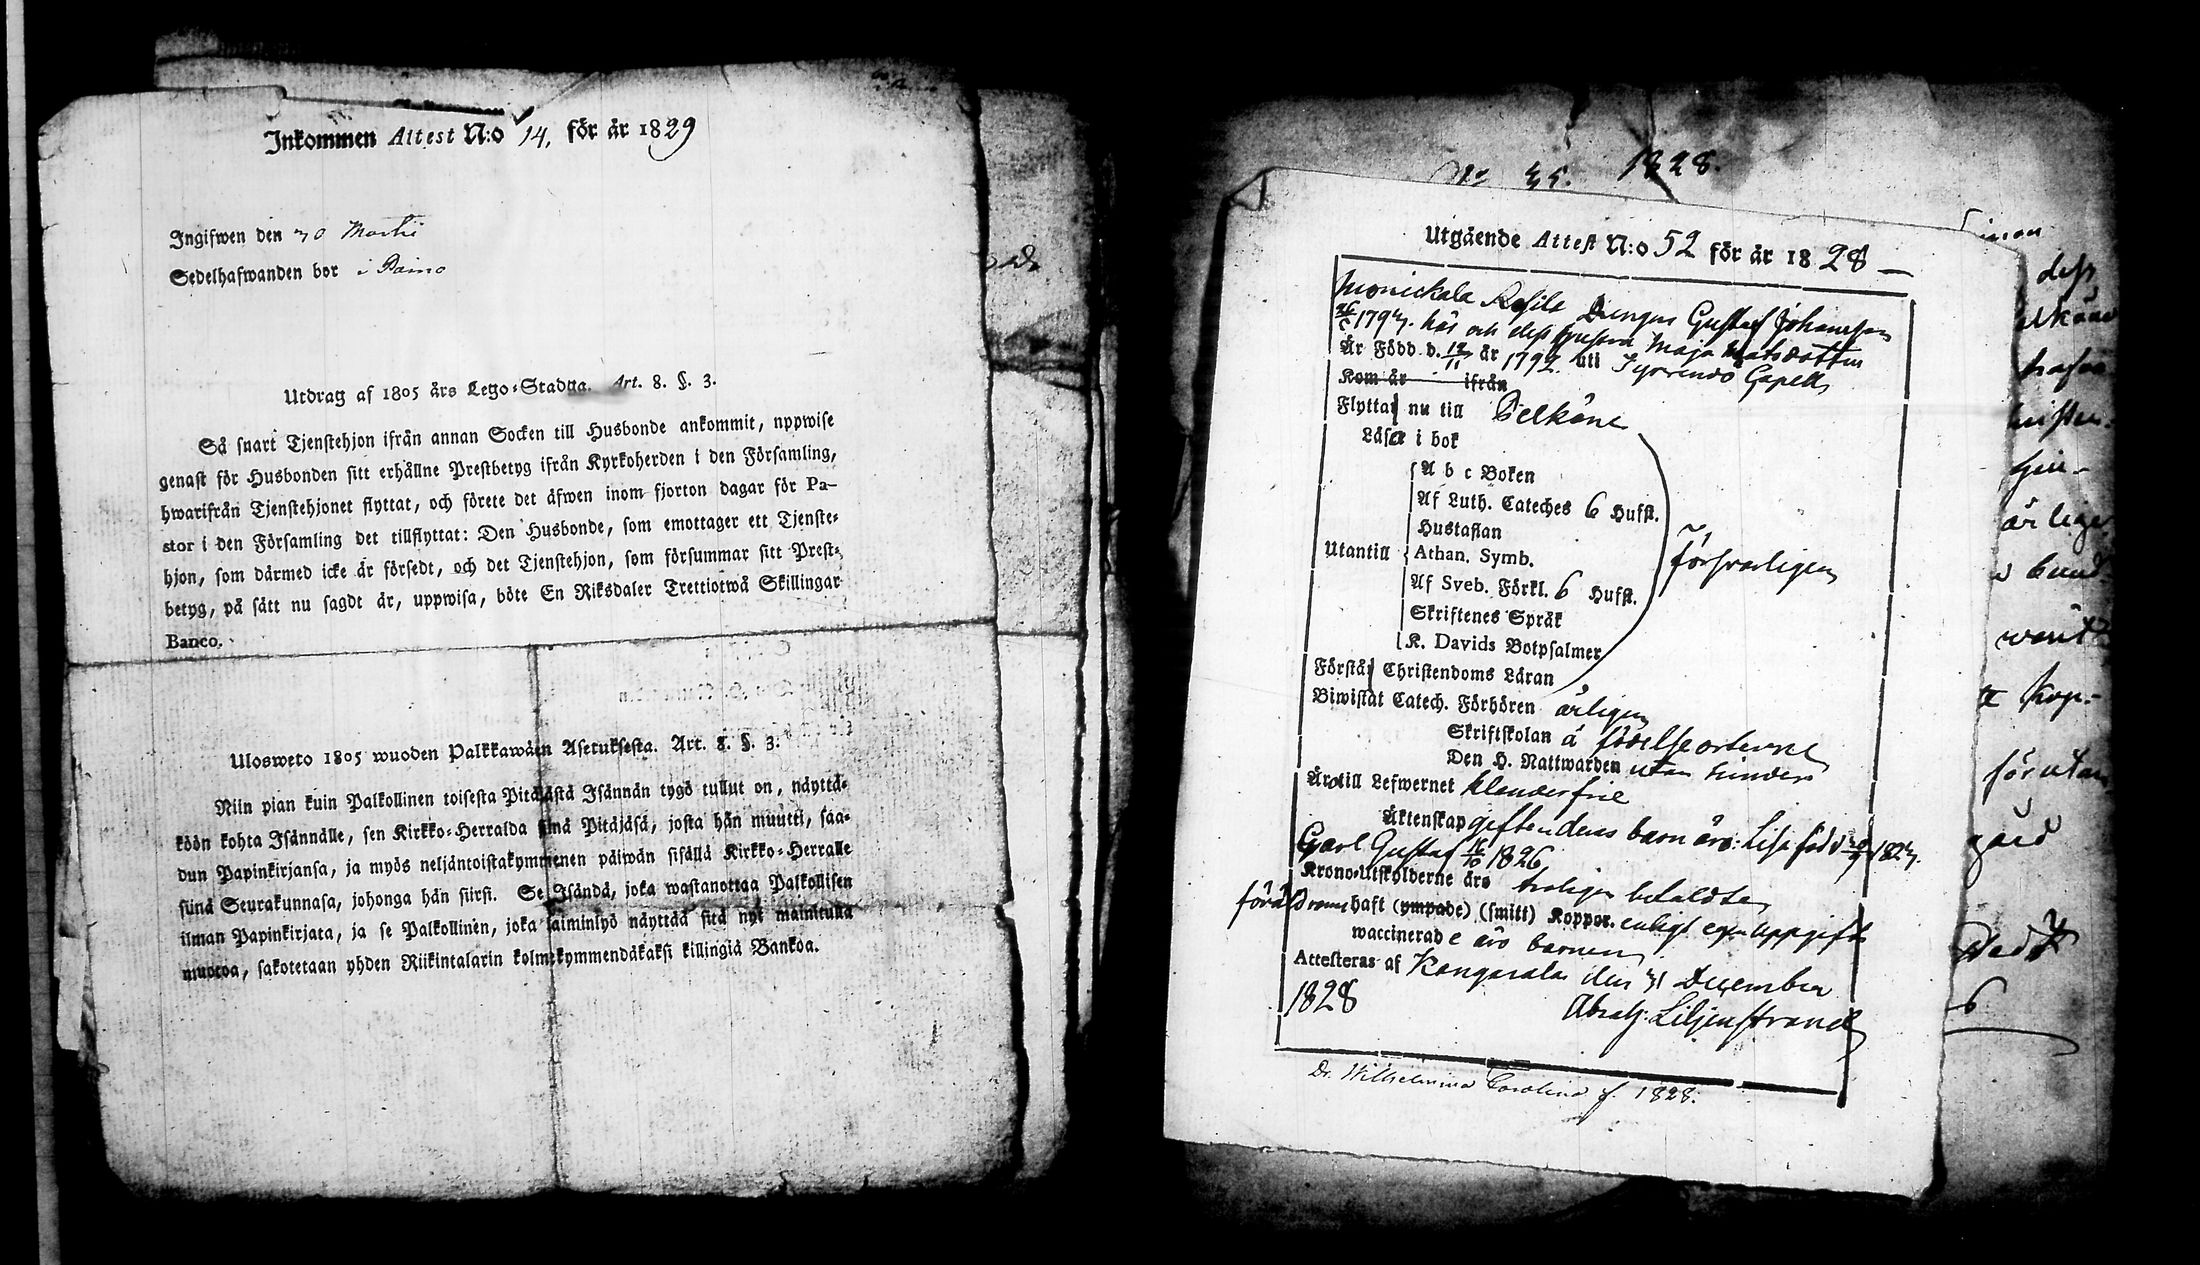 Inkommen Attest N:o 14, för år 1829
Ingifwen den 30 Martii
Sedelhafwanden bor i
Utdrag af 1805 års Lego-Stadga. Art. 8. §. 3.
Så snart Tjenstehjon ifrån annan Socken till Husbonde ankommit, uppwise
genast för Husbonden sitt erhållne Prestbetyg ifrån Kyrkoherden i den Församling,
hwarifrån Tjenstehjonet flyttat, och förete det äfwen inom fjorton dagar för Pa-
stor i den Församling det tillflyttat: Den Husbonde, som emottager ett Tjenste-
hjon, som därmed icke är försedt, och det Tjenstehjon, som försummar sitt Prest-
betyg, på sätt nu sagdt är, uppwisa, böte En Riksdaler Trettiotwå Skillingar
Banco.
Ulosweto 1805 wuoden Palkkawäen Asetuksesta. Art. 8. §. 3.
Niin pian kuin Palkollinen toisesta Pitäjästä Isännän tygö tullut on, näyttä-
köön kohta Isännälle, sen Kirkko-Herralda siinä Pitäjäsä, josta hän muutti, saa-
dun Papinkirjansa, ja myös neljäntoistakymmenen päiwän sisällä Kirkko-Herralle
siinä Seurakunnasa, johonga hän siirsi. Se Isändä, joka wastanottaa Palkollisen
ilman Papinkirjata, ja se Palkollinen, joka laiminlyö näyttää sitä nyt mainitulla
muotoa, sakotetaan yhden Riikintalarin kolmekymmendäkaksi killingiä Bankoa.
No 35. 1828.
Utgående Attest N:o 52 för år 1828
Drengen Gustaf Johansson
1797. här och dess hustru Maja Matsdotter
Är Född d. 12/11 år 1792. uti Capell
Kom år ifrån
Flyttar nu till Pelkäne
Läsa i bok
A b c Boken
Af Luth. Cateches 6 Hufst.
Hustaflan
Utantill Athan. Symb. försvarligen
Af Sveb. Förkl. 6 Hufst.
Skriftenes Språk
K. Davids Botpsalmer
Förstår Christendoms Läran
Biwistat Catech. Förhören årligen
Skriftskolan å födelseorterne
Den H. Nattwarden utan hinder
Äro till Lefwernet klanderfrie
Äktenskap gifte, deras barn äro: Lisa född
Carl Gustaf 16/10 1826
Krono-Utskylderne äro behörigen betaldte
föräldrarne haft (ympade) (smitt) Koppor. enligt egen uppgift
waccinerade äro barnen
Attesteras af Kangasala den 31 December
1828 Abrah: Liljenstrand
Dr. Wilhelmina Carolina f. 1828.